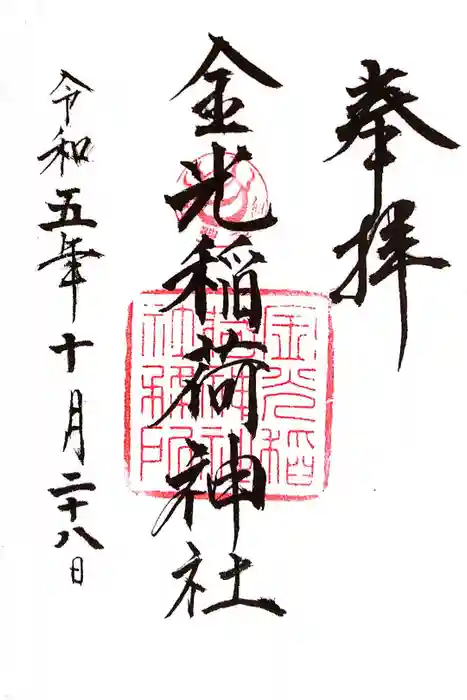 奉拝
金光稲荷神社
令和五年十月二十八日
金光稲
荷神社
社務所